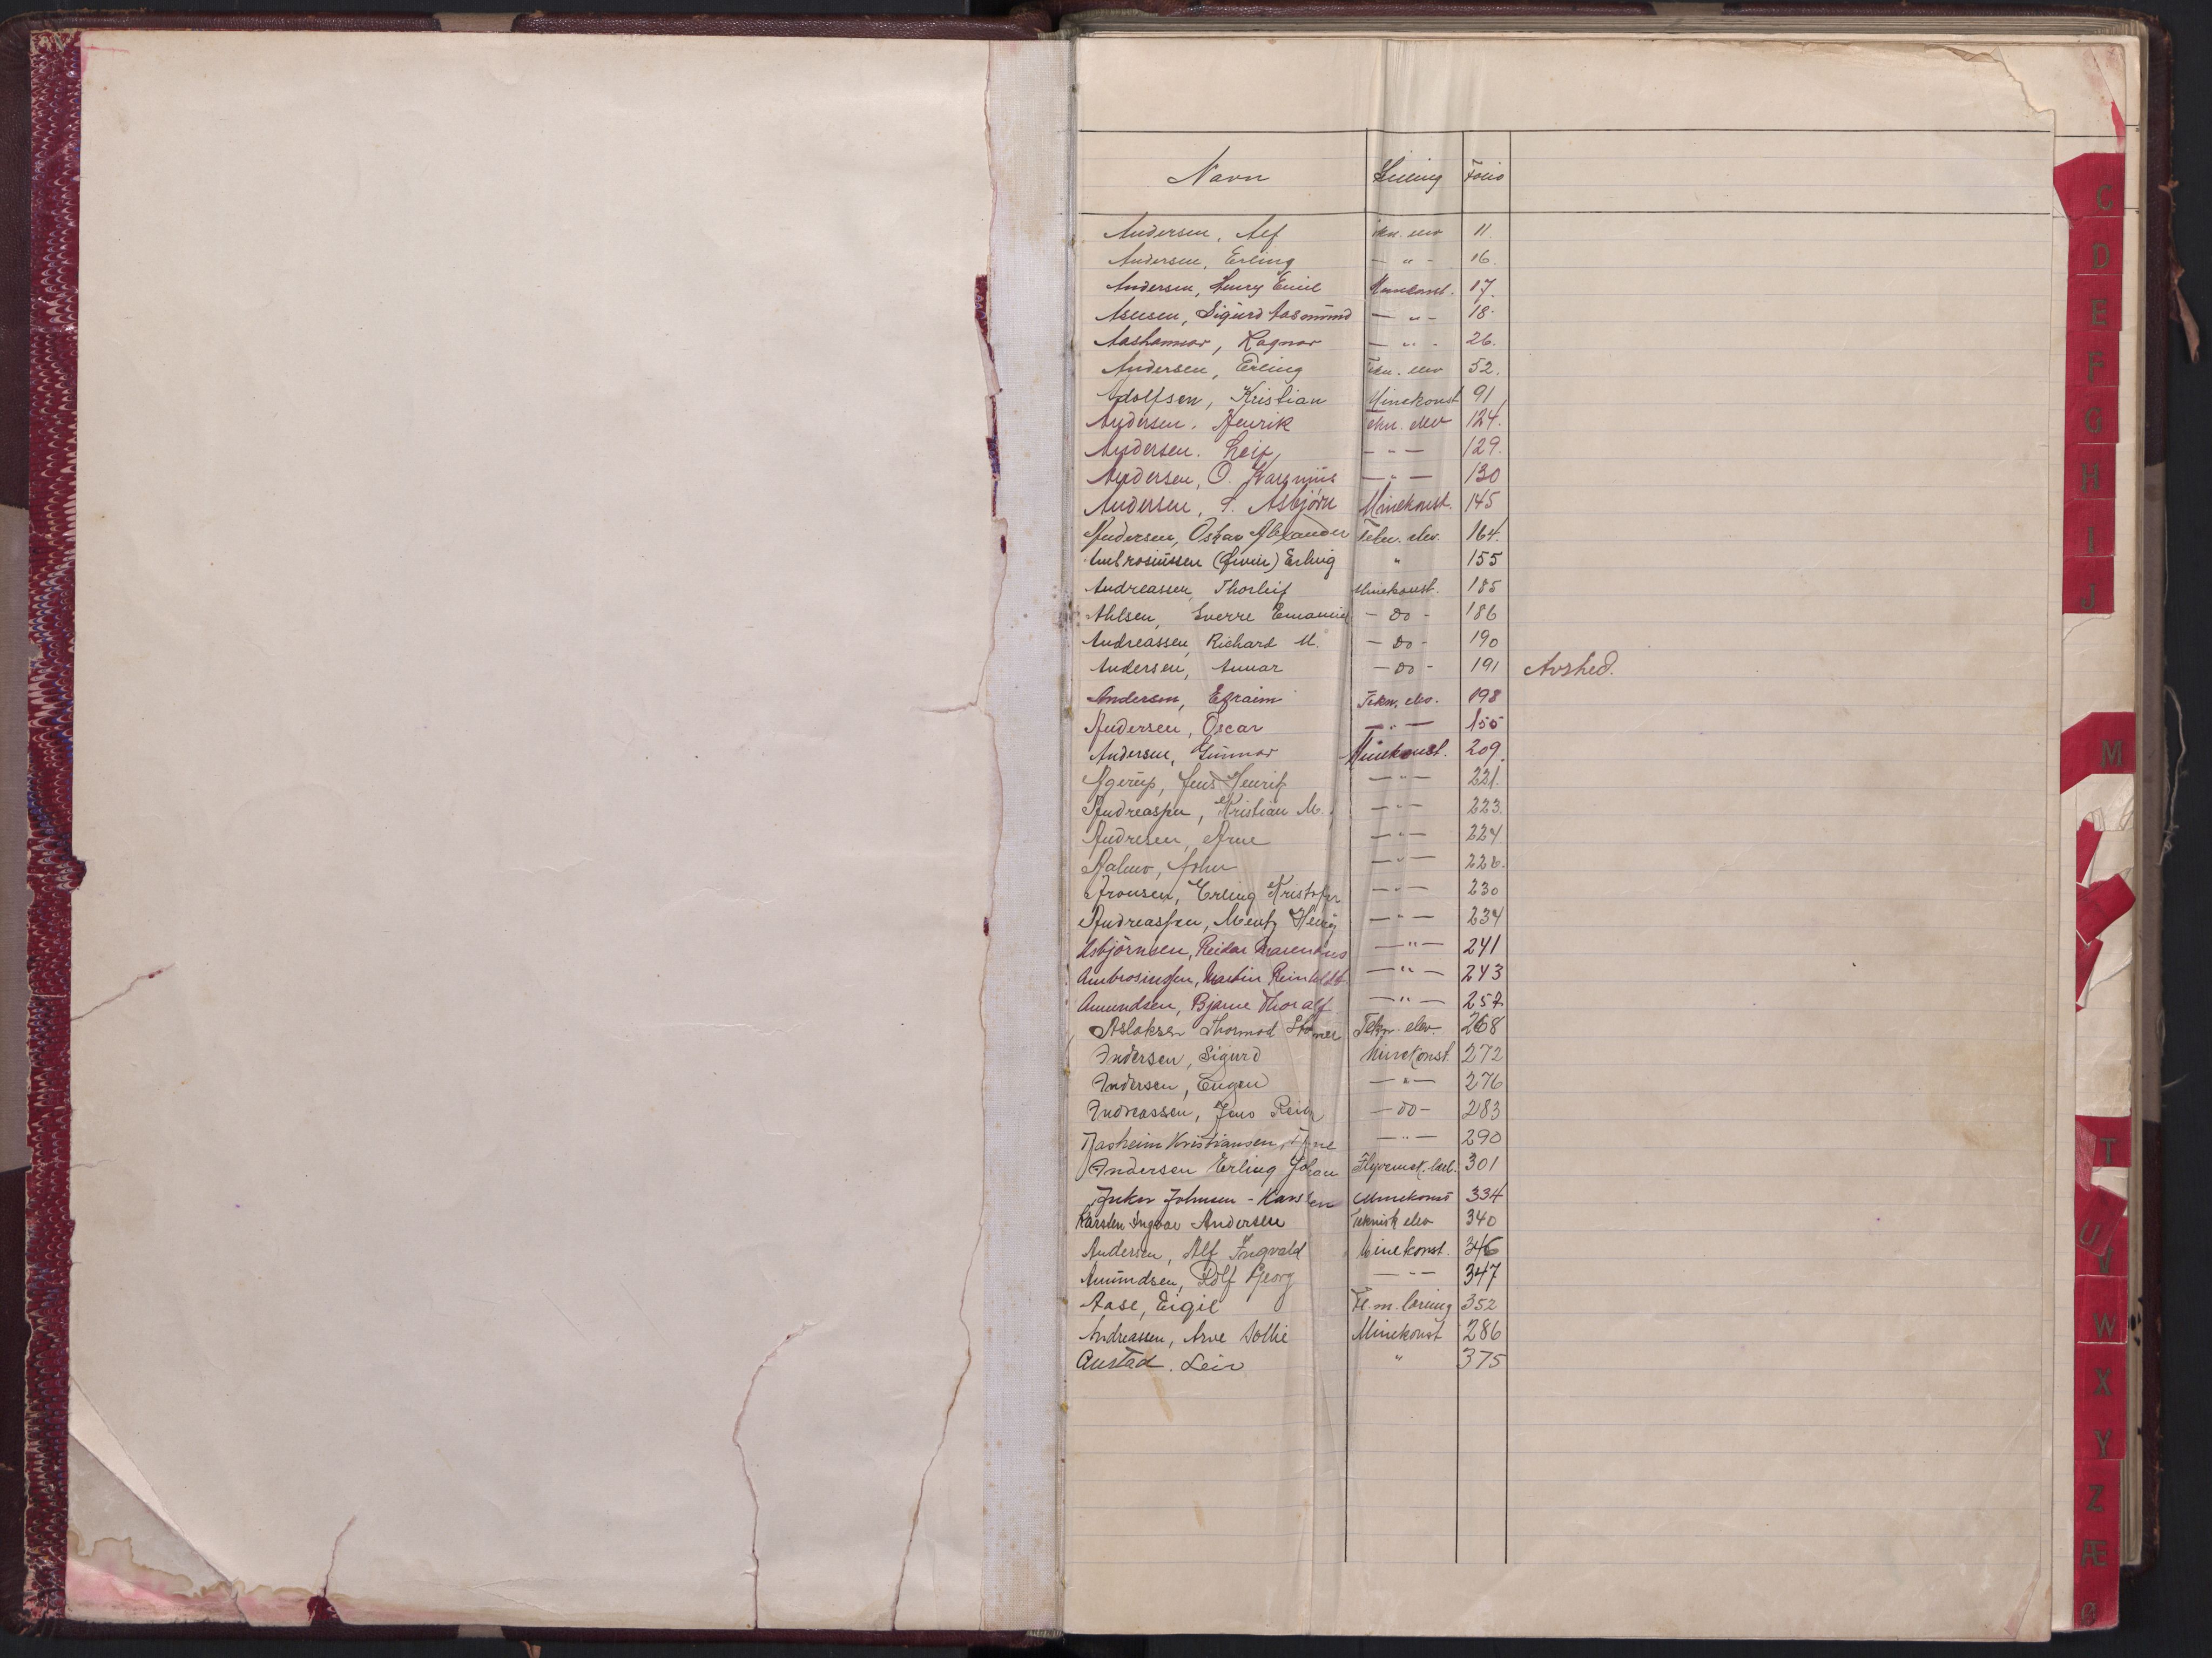 Navn Stilling Folio
Andersen, Alf tekn. elev 11.
Andersen, Erling — " — 16.
Andersen, Henry Emil Minekonst. 17.
Asusen, Sigurd Aasmund — " — 18.
Aashammar, Ragnar — " — 26.
Andersen, Erling Tekn. elev 52.
Adolfsen, Kristian Minekonst 91
Andersen, Henrik tekn. elev 124.
Andersen. Leif — " — 129.
Andersen, O. Magnus — " — 130
Andersen, S. Asbjørn Minekonst. 145
Andersen, Oskar Alexander Tekn. elev. 164.
Ambrosiussen Erling " 155
Andreassen, Thorleif Minekonst. 185
Ahlsen, Sverre Emanuel — do — 186
Andreassen, Richard M. — do — 190
Andersen, Annar — do — 191 Avsked.
Andersen, Efraim Tekn. elev. 198
Andersen, Oscar — " — 155
Andersen, Gunnar Minekonst. 209.
Agerup, Jens Henrik — " — 221.
Andreassen, Kristian M. — " — 223.
Andresen, Arne — " — 224
Aalmo, John — " — 226.
Aronsen, Erling Kristofer — " — 230
Andreassen, Mentz Henry — " — 234
Asbjörnsen, Reidar Marentius — " — 241
Ambrosiussen, Martin Reinholdt — " — 243
Amundsen, Bjarne Thoralf — " — 257
Aslaksen Thormod Tekn. elev. 268
Andersen, Sigurd Minekonst. 272
Andersen, Eugen — " — 276
Andreassen, Jens — do — 283
Aasheim Kristiansen, Arne — " — 290
Andersen Erling Johan Flyvemek. lærl. 301
Anker Johnsen - Karsten Minekonst 334
Karsten Ingvar Andersen Teknisk elev 340
Andersen, Alf Ingvald Minekonst. 346
Amundsen, Rolf Georg — " — 347
Aase, Eigil Fl. m. lærling 352
Andreassen, Arve Sollie Minekonst 286
Austad. Leiv " 375
C
D
E
F
G
H
I
J
M
T
U
V
W
X
Y
Z
Æ
Ø